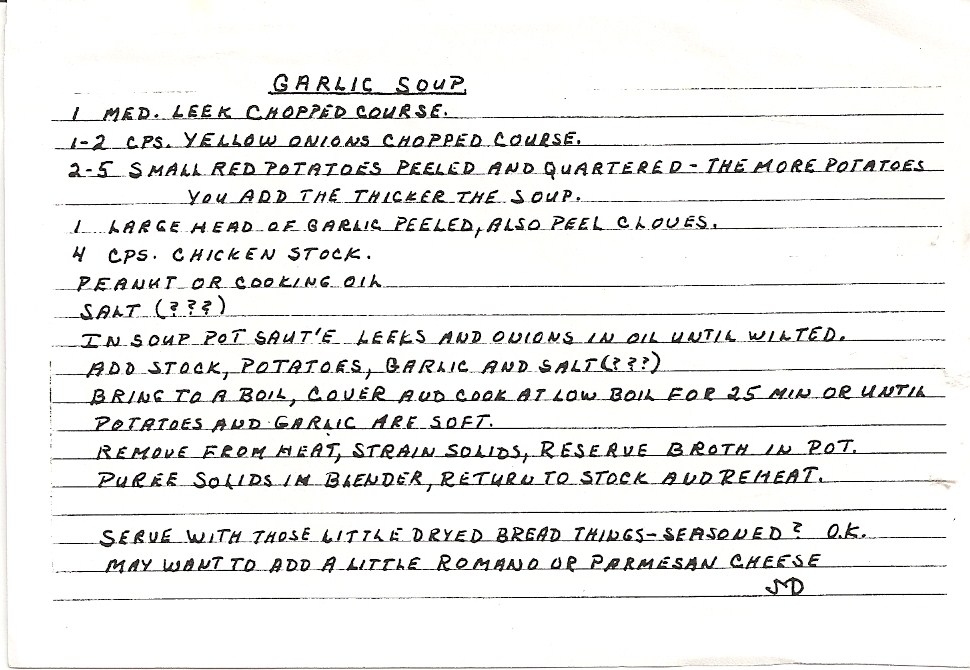 GARLIC SOUP
1 MED. LEEK CHOPPED COURSE.
1-2 CPS. YELLOW ONIONS CHOPPED COURSE.
2-5 SMALL RED POTATOES PEELED AND QUARTERED - THE MORE POTATOES
YOU ADD THE THICKER THE SOUP.
1 LARGE HEAD OF GARLIC PEELED, ALSO PEEL CLOVES.
4 CPS. CHICKEN STOCK.
PEANUT OR COOKING OIL
SALT (???)
IN SOUP POT SAUT'E LEEKS AND ONIONS IN OIL UNTIL WILTED.
ADD STOCK, POTATOES, GARLIC AND SALT (???)
BRING TO A BOIL, COVER AND COOK AT LOW BOIL FOR 25 MIN OR UNTIL
POTATOES AND GARLIC ARE SOFT.
REMOVE FROM HEAT, STRAIN SOLIDS, RESERVE BROTH IN POT.
PUREE SOLIDS IN BLENDER, RETURN TO STOCK AND REHEAT.
SERVE WITH THOSE LITTLE DRYED BREAD THINGS-SEASONED? O.K.
MAY WANT TO ADD A LITTLE ROMANO OR PARMESAN CHEESE